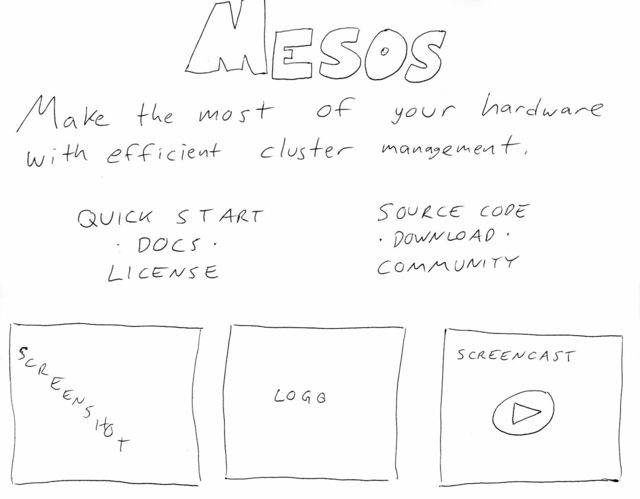 MESOS
Make the most of your hardware
with efficient cluster management.
QUICK START
· DOCS ·
LICENSE
SOURCE CODE
· DOWNLOAD ·
COMMUNITY
SCREENSHOT
LOGO
SCREENCAST